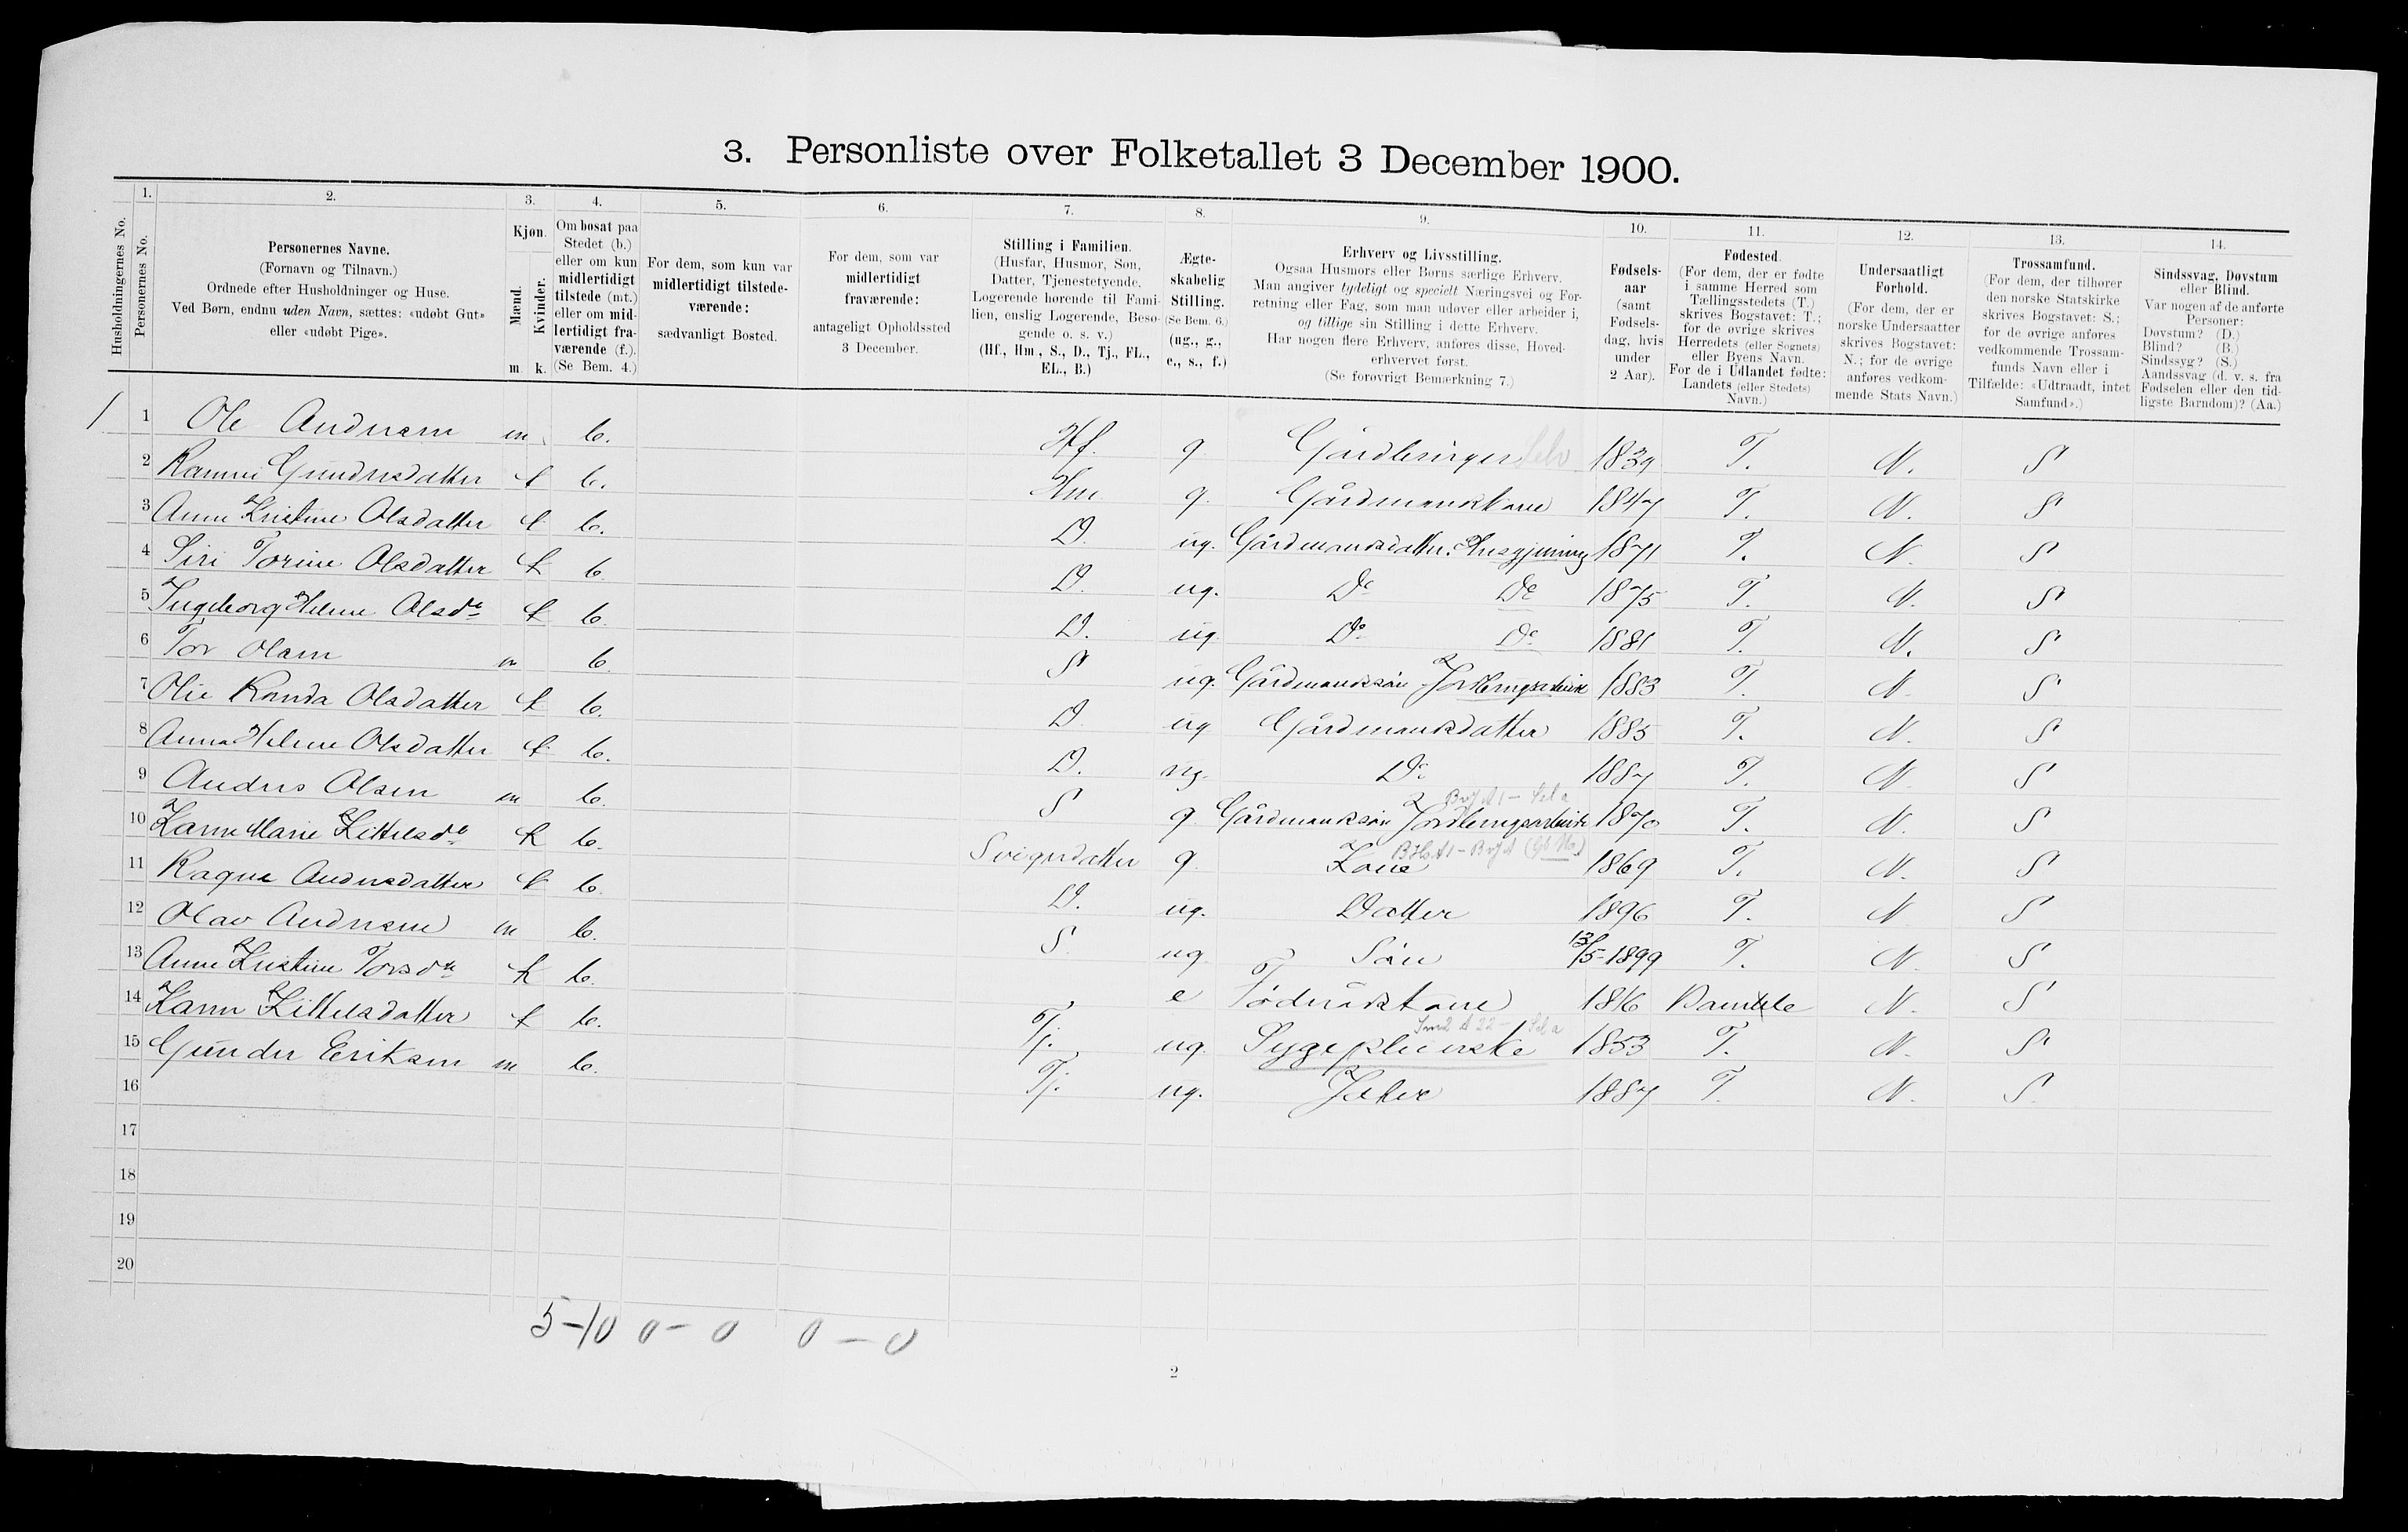 3. Personliste over Folketallet 3 December 1900.
1. 2. 3. 4. 5. 6. 7. 8. 9. 10. 11. 12. 13. 14.
Husholdningernes No.
Personernes No.
Personernes Navne.
(Fornavn og Tilnavn.)
Ordnede efter Husholdninger og Huse.
Ved Børn, endnu uden Navn, sættes: «udøbt Gut»
eller «udøbt Pige».
Kjøn.
Mænd.
Kvinder.
m. k.
Om bosat paa
Stedet (b.)
eller om kun
midlertidigt
tilstede (mt.)
eller om mid-
lertidigt fra-
værende (f.).
(Se Bem. 4.)
For dem, som kun var
midlertidigt tilstede-
værende:
sædvanligt Bosted.
For dem, som var
midlertidigt
fraværende:
antageligt Opholdssted
3 December.
Stilling i Familien.
(Husfar, Husmor, Søn,
Datter, Tjenestetyende,
Logerende hørende til Fami-
lien, enslig Logerende, Besø-
gende o. s. v.)
(Hf., Hm., S., D., Tj., FL.,
EL., B.)
Ægte-
skabelig
Stilling.
(Se Bem. 6.)
(ug., g.,
e., s., f.)
Erhverv og Livsstilling.
Ogsaa Husmors eller Børns særlige Erhverv.
Man angiver tydeligt og specielt Næringsvei og For-
retning eller Fag, som man udøver eller arbeider i,
og tillige sin Stilling i dette Erhverv.
Har nogen flere Erhverv, anføres disse, Hoved-
erhvervet først.
(Se forøvrigt Bemærkning 7.)
Fødsels-
aar
(samt
Fødsels-
dag, hvis
under
2 Aar).
Fødested.
(For dem, der er fødte
i samme Herred som
Tællingsstedets (T.)
skrives Bogstavet: T.;
for de øvrige skrives
Herredets (eller Sognets)
eller Byens Navn.
For de i Udlandet fødte:
Landets (eller Stedets)
Navn.)
Undersaatligt
Forhold.
(For dem, der er
norske Undersaatter
skrives Bogstavet:
N.; for de øvrige
anføres vedkom-
mende Stats Navn.)
Trossamfund.
(For dem, der tilhører
den norske Statskirke
skrives Bogstavet: S.;
for de øvrige anføres
vedkommende Trossam-
funds Navn eller i
Tilfælde: «Udtraadt, intet
Samfund».)
Sindssvag, Døvstum
eller Blind.
Var nogen af de anførte
Personer:
Døvstum? (D.)
Blind? (B.)
Sindssyg? (S.)
Aandssvag (d. v. s. fra
Fødselen eller den tid-
ligste Barndom)? (Aa.)
1 1 Ole Andresen m b. Hf. g Gårdbruger Selv 1839 T. N. S
2 Gundersdatter k b. Hm g. Gårdmandskone 1847 T. N. S
3 Anne Kristine Olsdatter k b. D. ug. Gårdmandsdatter. Husgjerning 1871 T. N. S
4 Siri Torine Olsdatter k b. D. ug. Do Do 1875 T. N. S
5 Ingeborg Helene Olsdr k b. D. ug. Do Do 1881 T. N. S
6 Tor Olsen m b. S ug. Gårdmandssøn Jordbrugsarbeide 1883 T. N. S
7 Olie Olsdatter k b. D. ug Gårdmandsdatter 1885 T. N. S
8 Anna Helene Olsdatter k b. D. ug. Do 1887 T. N. S
9 Anders Olsen m b. S g Gårdmandssøn Jordbrugsarbeide 1870 T. N. S
10 Karen Marie Kittelsdr k b. Svigerdatter g. Kone 1869 T. N. S
11 Ragna Andersdatter k b. D. ug. Datter 1896 T. N. S
12 Olav Andersen m b. S. ug Søn 13/5-1899 T. N. S
13 Anne Kristine Torsdr k b. e Føderådskone 1816 Bamble N. S
14 Karen Kittelsdatter k b. Tj. ug. Sygepleierske 1853 T. N. S
15 Gunder Eriksen m b. Tj. ug. Jæter 1887 T. N. S
16
17
18
19
20
5-10 0-0 0-0
2